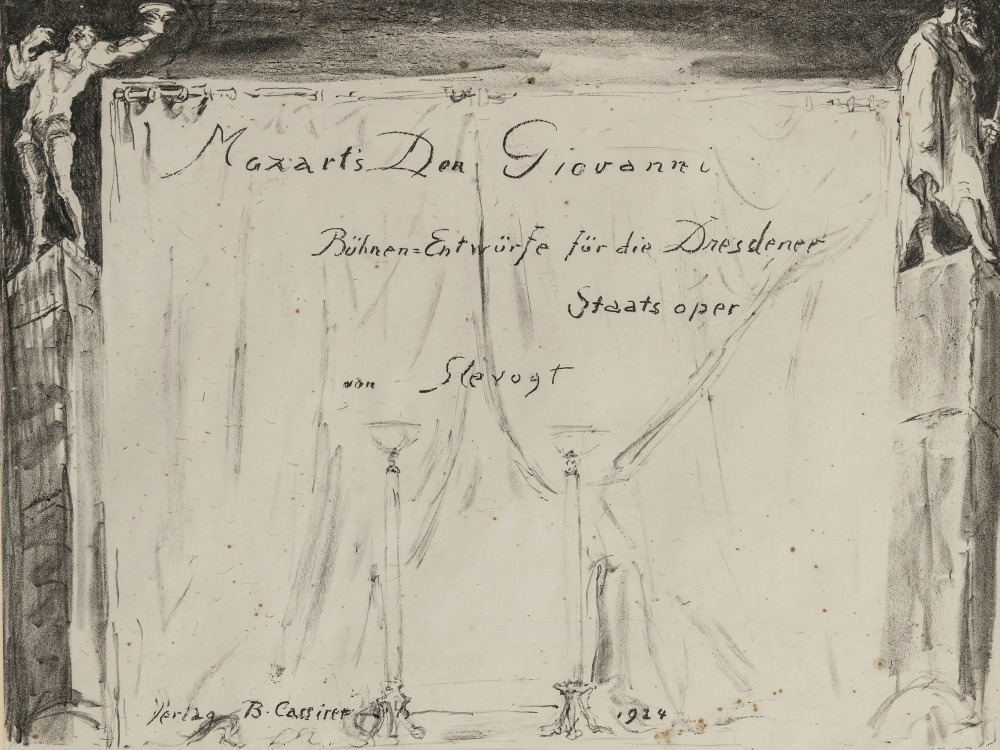 Mozart's Don Giovanni
Bühnen=Entwürfe für die Dresdener
Staatsoper
von Slevogt
Verlag B. Cassirer 1924